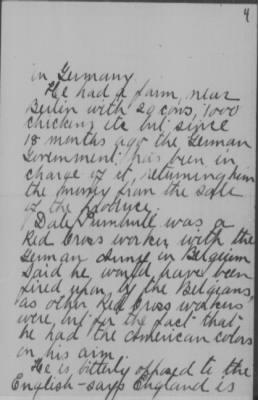 4
in Germany.
He had a farm, near
Berlin with 20 cows, 1000
chickens etc but since
18 months ago the German
Government, has been in
charge of it, returning him
the money from the sale
of the produce.
Dale was a
Red Cross worker with the
German in Belgium
Said he, would, have been
fired upon, by the Belgians,
as other Red Cross workers
were, but for the fact that
he had the American colors
on his arm.
He is bitterly opposed to the
English - says England is